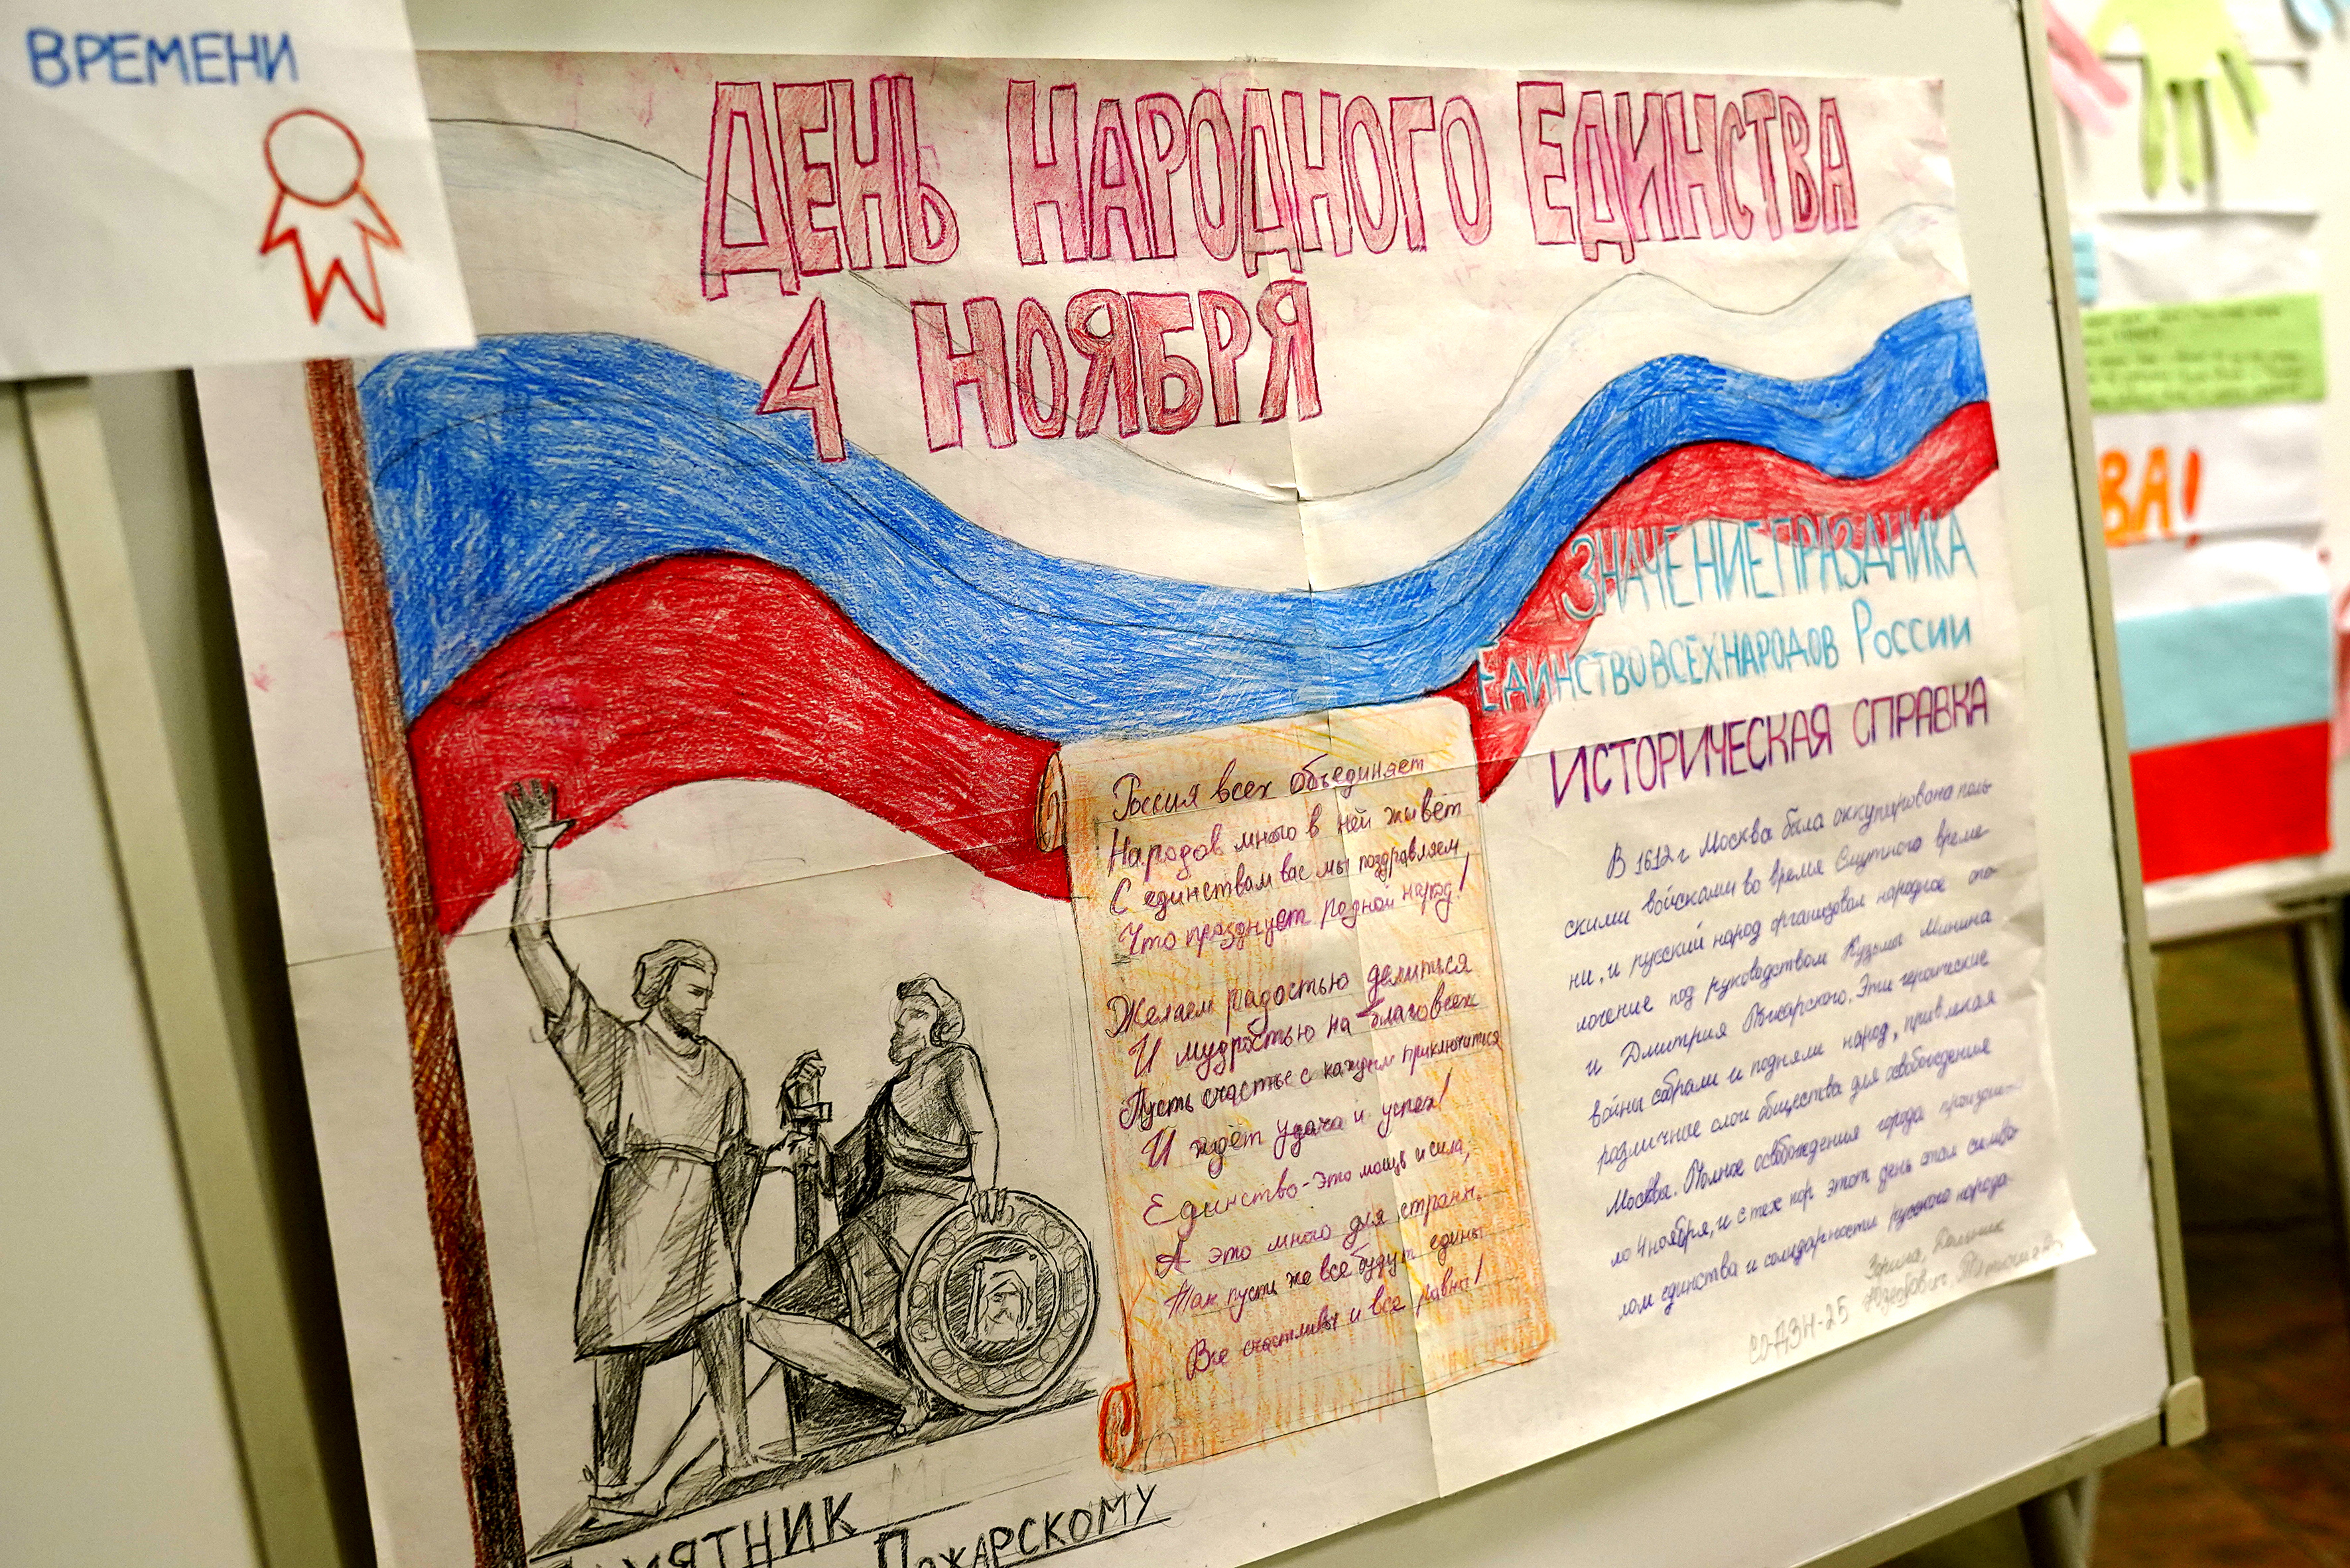 ВРЕМЕНИ
ДЕНЬ НАРОДНОГО ЕДИНСТВА
4 НОЯБРЯ
ЗНАЧЕНИЕ ПРАЗДНИКА
ЕДИНСТВО ВСЕХ НАРОДОВ РОССИИ
ИСТОРИЧЕСКАЯ СПРАВКА
Россия всех объединяет
Народов много в ней живёт
С единствам вас мы поздравляем
Что празднует родной народ!
Желаем радостью делиться
И мудростью на благо всех
Пусть счастье с каждым приключится
И ждёт удача и успех!
Единство - это мощь и сила,
А это много для страны.
Так пусть же все будут едины
Все счастливы и все равны!
В 1612 г Москва была оккупирована поль-
скими войсками во время Смутного време-
ни, и русский народ организовал народное опо-
лочение под руководством Кузьмы Минина
и Дмитрия Пожарского. Эти героические
войны собрали и подняли народ, привлекая
различные слои общества для освобождения
Москва. Полное освобождения города произош-
ло 4 ноября, и с тех пор этот день стал симво
лом единства и солидарности русского народа.
Зорина,
СО-ДЗН-25
ПАМЯТНИК
ПОЖАРСКОМУ
ВА!